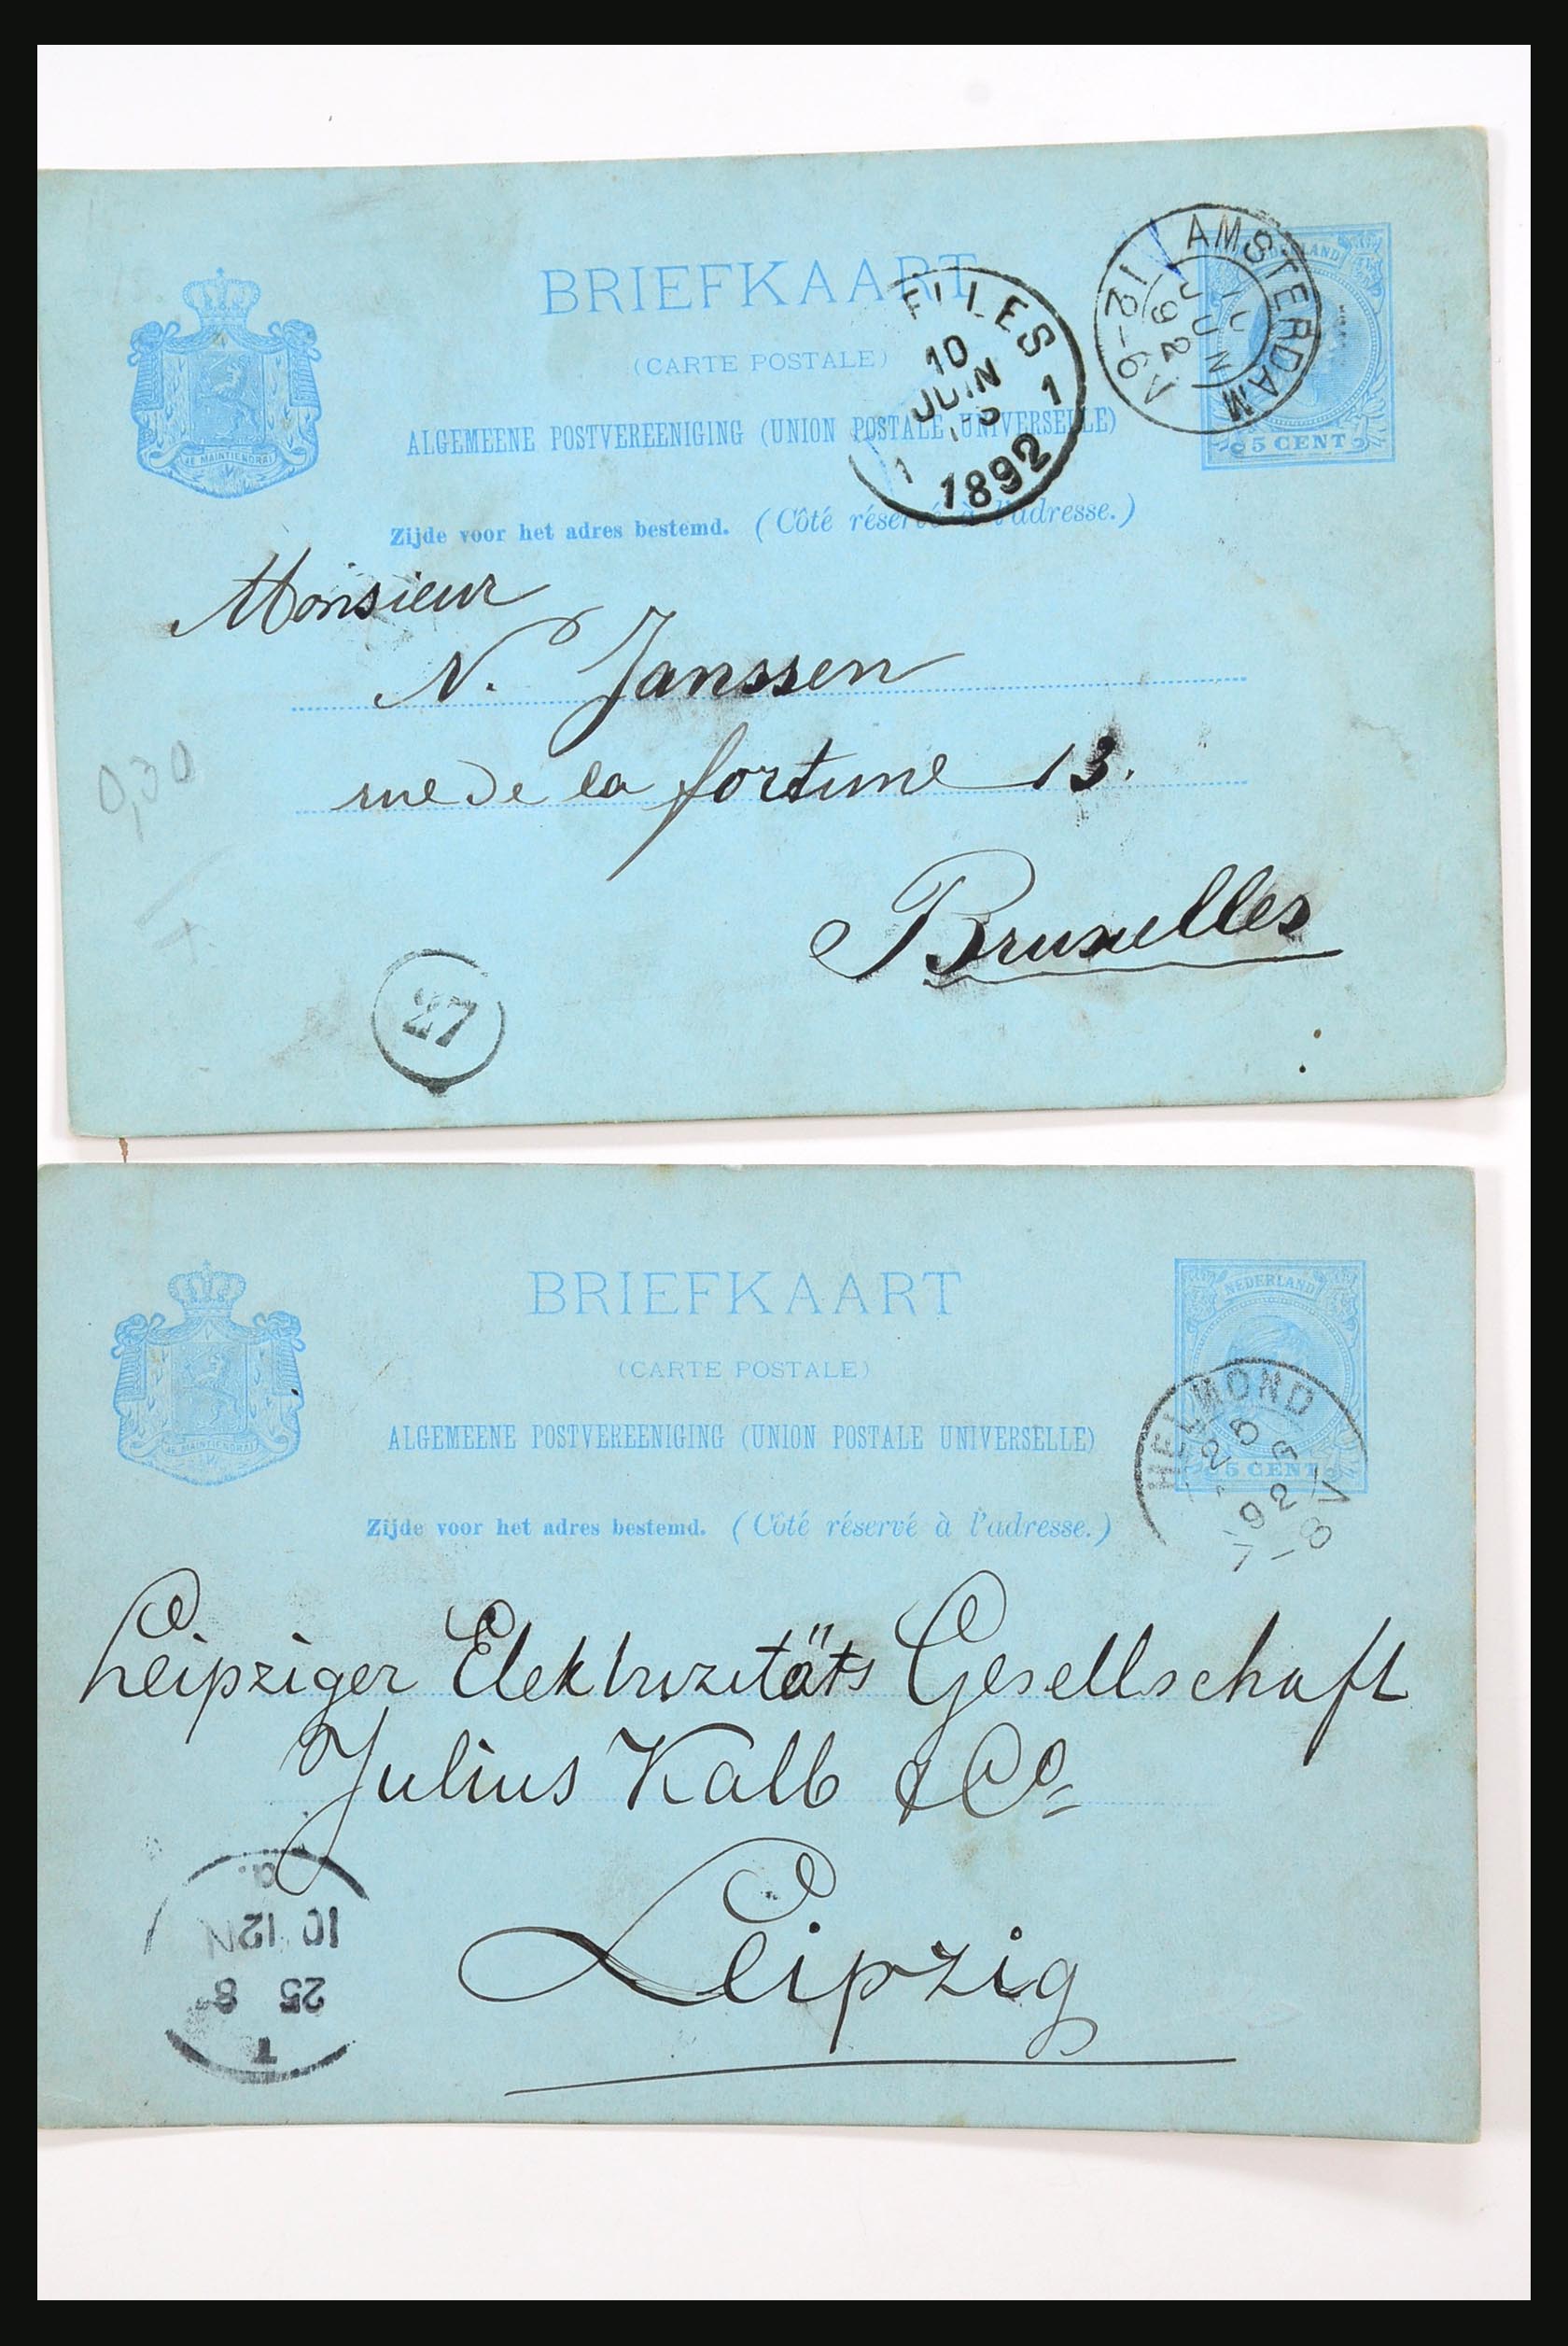 BRIEFKAART
(CARTE POSTALE)
ALGEMEENE POSTVEREENIGING (UNION POSTALE UNIVERSELLE)
Zijde voor het adres bestemd. (Côté réservé à l'adresse.)
JE MAINTIENDRAI
AMSTERDAM
JUN
92
12-6V
5 CENT
10
JUIN
1
1
1892
Monsieur
N. Janssen
rue de la fortune 13.
Bruxelles
0,30
27
BRIEFKAART
(CARTE POSTALE)
ALGEMEENE POSTVEREENIGING (UNION POSTALE UNIVERSELLE)
Zijde voor het adres bestemd. (Côté réservé à l'adresse.)
JE MAINTIENDRAI
NEDERLAND
5 CENT
HELMOND
92
Leipziger Elektrizitäts Gesellschaft
Julius Kalb & Co
Leipzig
T
25 8
10 12N